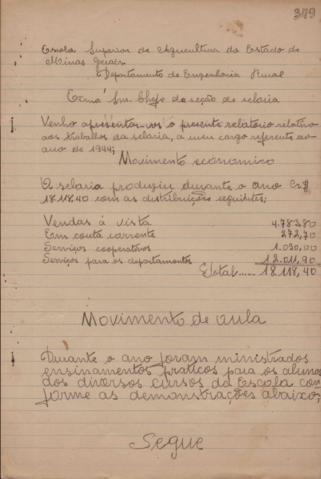 379
Escola Superior de Agricultura do Estado de
Minas Gerais
Departamento de Engenharia Rural
Exmº Snr Chefe da seção de selaria
Venho apresentar-vos o presente relatorio relativo
aos trabalhos da selaria, a meu cargo referente ao
ano de 1944;
Movimento economico
A selaria produziu durante o ano Cr$
18.118,40 com as distribuições seguintes;
Vendas à vista 4.783,80
Em conta corrente 272,70
Serviços cooperativos 1.050,00
Serviços para os departamentos 12.011,90
Total...... 18.118,40
Movimento de aula
Durante o ano foram ministrados
ensinamentos praticos para os alunos
dos diversos cursos da Escola con
forme as demonstrações abaixo;
Segue